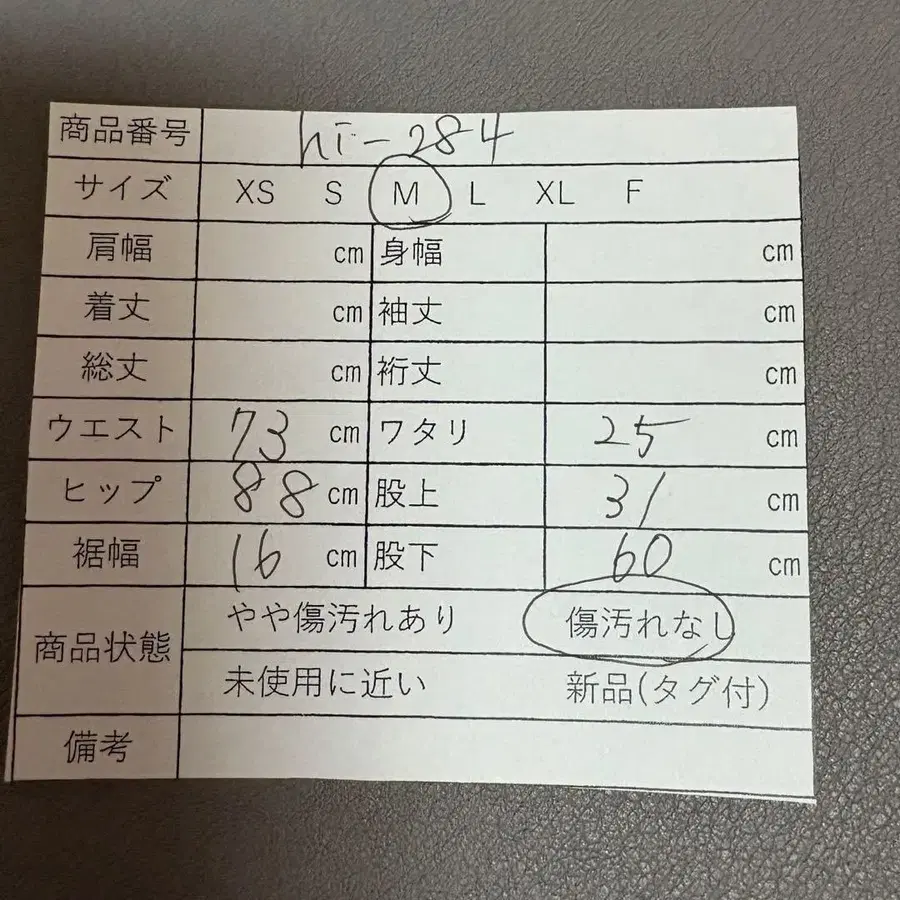 商品番号 hi-284
サイズ XS S M L XL F
肩幅 cm 身幅 cm
着丈 cm 袖丈 cm
総丈 cm 裄丈 cm
ウエスト 73 cm ワタリ 25 cm
ヒップ 88 cm 股上 31 cm
裾幅 16 cm 股下 60 cm
商品状態 やや傷汚れあり 傷汚れなし
未使用に近い 新品(タグ付)
備考